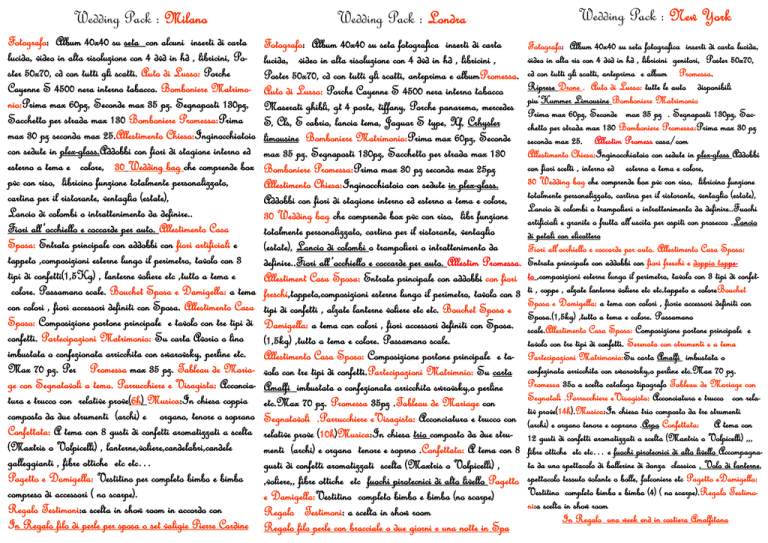 Wedding Pack : Milano
Fotografo: Album 40x40 su seta con alcuni inserti di carta
lucida, video in alta risoluzione con 4 dvd in hd , libricini, Po-
ster 50x70, cd con tutti gli scatti. Auto di Lusso: Porche
Cayenne S 4500 nera interno tabacco. Bomboniere Matrimo-
nio:Prima max 60pz, Seconde max 35 pz. Segnaposti 130pz,
Sacchetto per strada max 130 Bomboniere Promessa:Prima
max 30 pz seconda max 25.Allestimento Chiesa:Inginocchiatoio
con sedute in plex-glass.Addobbi con fiori di stagione interno ed
esterno a tema e colore, 30 Wedding bag che comprende box
pvc con riso, libricino funzione totalmente personalizzato,
cartina per il ristorante, ventaglio (estate),
Lancio di colombi o intrattenimento da definire..
Fiori all'occhiello e coccarde per auto. Allestimento Casa
Sposa: Entrata principale con addobbi con fiori artificiali e
tappeto ,composizioni esterne lungo il perimetro, tavolo con 3
tipi di confetti(1,5Kg) , lanterne voliere etc ,tutto a tema e
colore. Passamano scale. Bouchet Sposa e Damigella: a tema
con colori , fiori accessori definiti con Sposa. Allestimento Casa
Sposo: Composizione portone principale e tavolo con tre tipi di
confetti. Partecipazioni Matrimonio: Su carta Avorio o lino
imbustata o confezionata arricchita con swarowsky, perline etc.
Max 70 pz. Per Promessa max 35 pz. Tableau de Maria-
ge con Segnatavoli a tema. Parrucchiere e Visagista: Acconcia-
tura e trucco con relative prove(6h) Musica:In chiesa coppia
composta da due strumenti (archi) e organo, tenore o soprano
Confettata: A tema con 8 gusti di confetti aromatizzati a scelta
(Maxtris o Volpicelli) , lanterne,voliere,candelabri,candele
galleggianti , fibre ottiche etc etc...
Pagetto e Damigella: Vestitino per completo bimbo e bimba
compreso di accessori ( no scarpe).
Regalo Testimoni:a scelta in show room in accordo con
In Regalo filo di perle per sposa o set valigie Pierre Cardine
Wedding Pack : Londra
Fotografo: Album 40x40 su seta fotografica inserti di carta
lucida, video in alta risoluzione con 4 dvd in hd , libricini ,
Poster 50x70, cd con tutti gli scatti, anteprima e albumPromessa.
Auto di Lusso: Porche Cayenne S 4500 nera interno tabacco
Maserati ghibli, gt 4 porte, tiffany, Porche panarema, mercedes
S, Cls, E cabrio, lancia tema, Jaguar S type, Xf, Crhysler
limousine Bomboniere Matrimonio:Prima max 60pz, Seconde
max 35 pz. Segnaposti 130pz, Sacchetto per strada max 130
Bomboniere Promessa:Prima max 30 pz seconda max 25pz
Allestimento Chiesa:Inginocchiatoio con sedute in plex-glass.
Addobbi con fiori di stagione interno ed esterno a tema e colore,
30 Wedding bag che comprende box pvc con riso, libr funzione
totalmente personalizzato, cartina per il ristorante, ventaglio
(estate), Lancio di colombi o trampolieri o intrattenimento da
definire..Fiori all'occhiello e coccarde per auto. Allestim Promessa.
Allestiment Casa Sposa: Entrata principale con addobbi con fiori
freschi,tappeto,composizioni esterne lungo il perimetro, tavolo con 3
tipi di confetti , alzate lanterne voliere etc etc. Bouchet Sposa e
Damigella: a tema con colori , fiori accessori definiti con Sposa.
(1,5kg) ,tutto a tema e colore. Passamano scale.
Allestimento Casa Sposo: Composizione portone principale e ta-
volo con tre tipi di confetti.Partecipazioni Matrimnio: Su carta
Amalfi imbustata o confezionata arricchita swrovsky,o perline
etc.Max 70 pz. Promessa 35pz .Tableau de Mariage con
Segnatavoli .Parrucchiere eVisagista: Acconciatura e trucco con
relative prove (10h)Musica:In chiesa trio composta da due stru-
menti (archi) e organo tenore e soprno .Confettata: A tema con 8
gusti di confetti aromatizzati scelta (Maxtris o Volpicelli) ,
,voliere,, fibre ottiche etc fuochi pirotecnici di alto livello Pagetto
e Damigella:Vestitino completo bimbo e bimba (no scarpe)
Regalo Testimoni: a scelta in show room
Regalo filo perle con bracciale o due giorni e una notte in Spa
Wedding Pack : New York
Fotografo: Album 40x40 su seta fotografica inserti di carta lucida,
video in alta ris con 4 dvd in hd , libricini genitori, Poster 50x70,
cd con tutti gli scatti, anteprima e album Promessa.
Riprese Drone . Auto di Lusso: tutte le auto disponibili
piu'Hummer Limousine Bomboniere Matrimonio
Prima max 60pz, Seconde max 35 pz . Segnaposti 130pz, Sac-
chetto per strada max 130 Bomboniere Promessa:Prima max 30 pz
seconda max 25. Allestim Promess casa/com
Allestimento Chiesa:Inginocchiatoio con sedute in plex-glass Addobbi
con fiori scelti , interno ed esterno a tema e colore,
30 Wedding bag che comprende box pvc con riso, libricino funzione
totalmente personalizzato, cartina per il ristorante, ventaglio (estate),
Lancio di colombi o trampolieri o intrattenimento da definire..Fuochi
artificiali e granite o frutta all'uscita per ospiti con prosecco .Lancio
di petali con elicottero
Fiori all'occhiello e coccarde per auto. Allestimento Casa Sposa:
Entrata principale con addobbi con fiori freschi e doppio tappe-
to ,composizioni esterne lungo il perimetro, tavolo con 3 tipi di confet-
ti , coppe , alzate lanterne voliere etc etc.tappeto a coloreBouchet
Sposa e Damigella: a tema con colori , fiorie accessori definiti con
Sposa.(1,5kg) ,tutto a tema e colore. Passamano
scale.Allestimento Casa Sposo: Composizione portone principale e
tavolo con tre tipi di confetti. Serenata con strumenti e a tema
Partecipazioni Matrimonio:Su carta Amalfi imbustata o
confezinata arricchita con swrowsky,o perline etc.Max 70 pz.
Promessa 35o a scelta catalogo tipografo Tableau de Mariage con
Segnatali .Parrucchiere eVisagista: Acconciatura e trucco con rela-
tiv prove(14h).Musica:In chiesa trio composta da tre strumenti
(archi) e organo tenore e soprano .Arpa Confettata: A tema con
12 gusti di confetti aromatizzati a scelta (Maxtris o Volpicelli) ,,,
fibre ottiche etc etc... e fuochi pirotecnici di alto livello Accompagna-
ta da una spettacolo di ballerine di danza classica . Volo di lanterne,
spettacolo tessuto volante o bolle, falconiere etc Pagetto eDamigella:
Vestitino completo bimbo e bimba (4) ( no scarpe).Regalo Testimo-
ni:a scelta in show room
In Regalo una week end in costiera Amalfitana